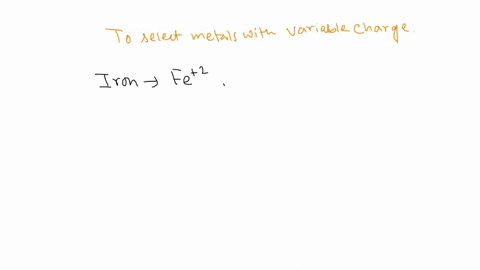 To select metals with variable charge.
Iron → Fe⁺² ,